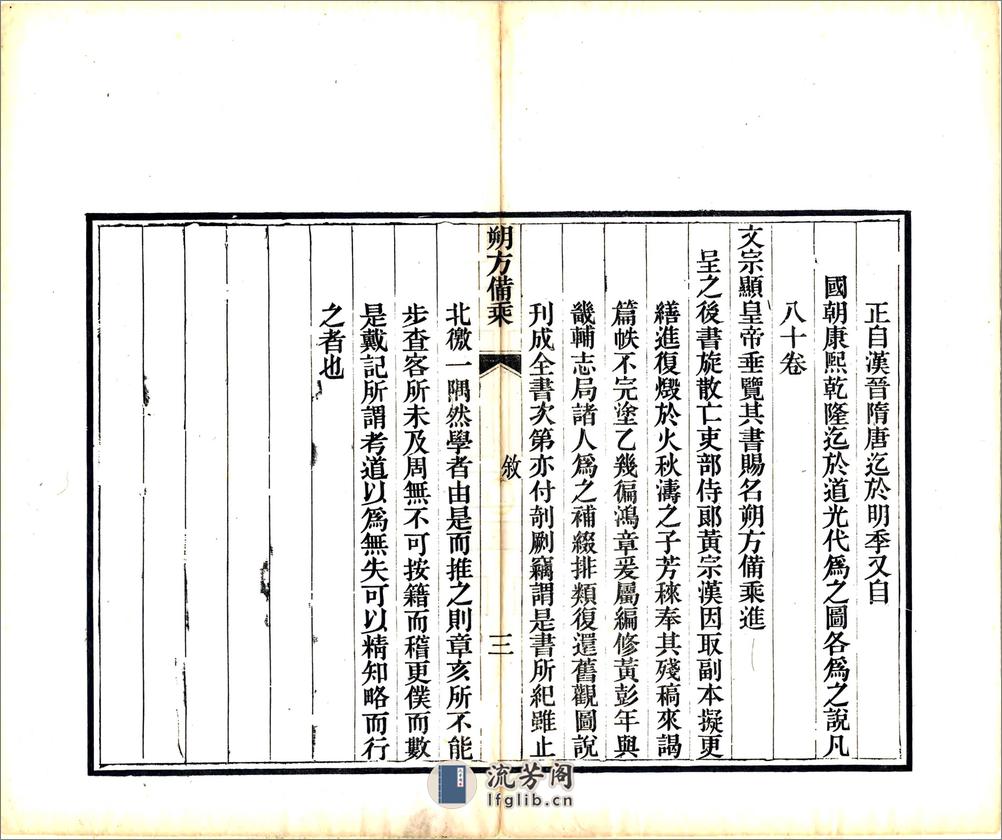 正自漢晉隋唐迄於明季又自
國朝康熙乾隆迄於道光代爲之圖各爲之說凡
八十卷
文宗顯皇帝垂覽其書賜名朔方備乘進
呈之後書旋散亡吏部侍郎黃宗漢因取副本擬更
繕進復燬於火秋濤之子芳秝奉其殘稿來謁
篇帙不完塗乙幾徧鴻章爰屬編修黃彭年與
畿輔志局諸人爲之補綴排類復還舊觀圖說
刊成全書次第亦付剞劂竊謂是書所紀雖止
朔方備乘
敘
三
北徼一隅然學者由是而推之則章亥所不能
步査客所未及周無不可按籍而稽更僕而數
是戴記所謂考道以爲無失可以精知略而行
之者也
流芳阁
lfglib.cn